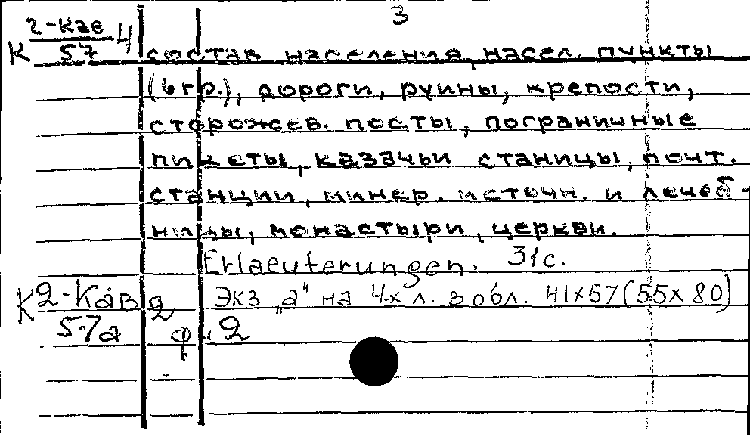 3
К 2-Кав 4
57
состав населения, насел. пункты
(6 гр.), дороги, руины, крепости,
сторожев. посты, пограничные
пикеты, казачьи станицы, почт.
станции, минер. источн. и лечеб-
ницы, монастыри, церкви.
Erlaeuterungen. 31с.
К 2-Кав 2 Экз „а" на 4х л. в обл. 41х57 (55х80)
57а ф. 2